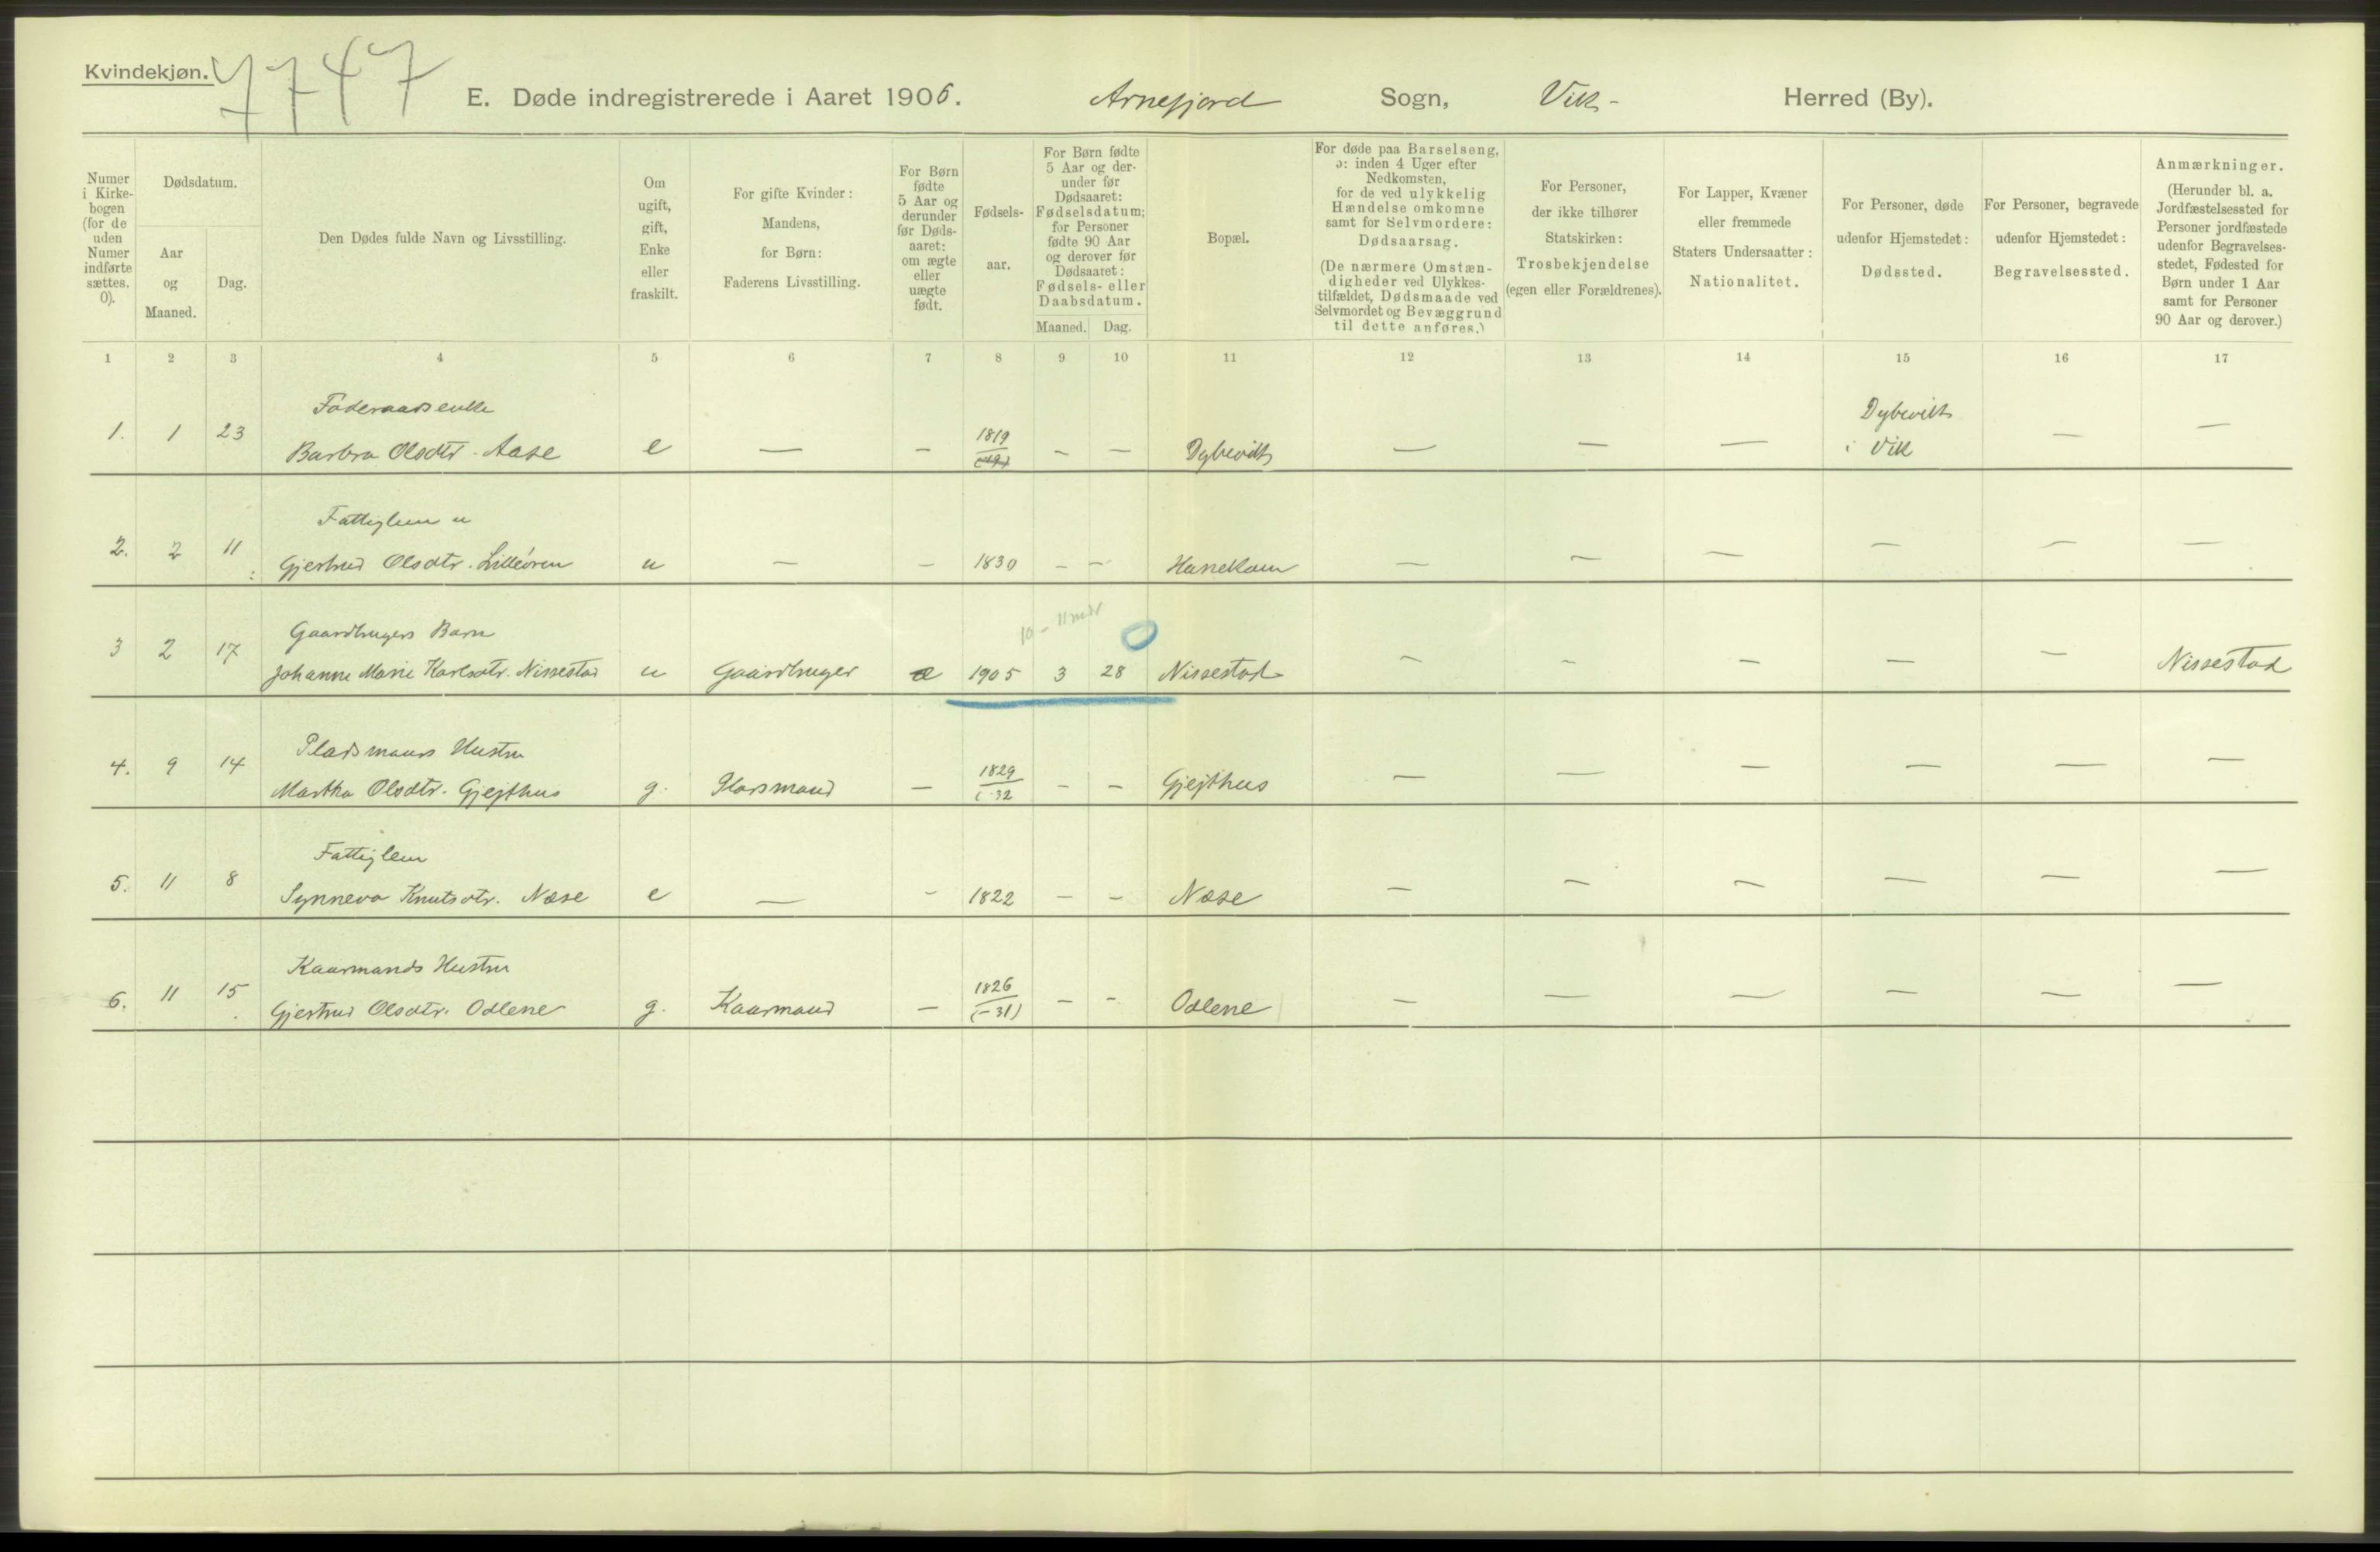 Kvindekjøn.
7747
E. Døde indregistrerede i Aaret 1906. Arnefjord Sogn, Vik - Herred (By).
Numer i Kirkebogen (for de uden Numer indførte sættes. 0).
Dødsdatum.
Aar og Maaned.
Dag.
Den Dødes fulde Navn og Livsstilling.
Om ugift, gift, Enke eller fraskilt.
For gifte Kvinder: Mandens, for Børn: Faderens Livsstilling.
For Børn fødte 5 Aar og derunder før Dødsaaret: om ægte eller uægte født.
Fødselsaar.
For Børn fødte 5 Aar og derunder før Dødsaaret: Fødselsdatum; for Personer fødte 90 Aar og derover før Dødsaaret: Fødsels- eller Daabsdatum.
Maaned. Dag.
Bopæl.
For døde paa Barselseng, ɔ: inden 4 Uger efter Nedkomsten, for de ved ulykkelig Hændelse omkomne samt for Selvmordere: Dødsaarsag.
(De nærmere Omstændigheder ved Ulykkestilfældet, Dødsmaade ved Selvmordet og Bevæggrund til dette anføres.)
For Personer, der ikke tilhører Statskirken: Trosbekjendelse (egen eller Forældrenes).
For Lapper, Kvæner eller fremmede Staters Undersaatter: Nationalitet.
For Personer, døde udenfor Hjemstedet: Dødssted.
For Personer, begravede udenfor Hjemstedet: Begravelsessted.
Anmærkninger.
(Herunder bl. a. Jordfæstelsessted for Personer jordfæstede udenfor Begravelsesstedet, Fødested for Børn under 1 Aar samt for Personer 90 Aar og derover.)
1 2 3 4 5 6 7 8 9 10 11 12 13 14 15 16 17
Foderaadsenke Dybevik
1. 1 23 Barbra Olsdtr. Aase e — — 1819 — — Dybevik — — — i Vik — —
Fattiglem u
2. 2 11 Gjertrud Olsdtr. Lilleøren u — — 1830 — — Hanekam — — — — — —
10 - 11 mdr 0
Gaardbrugers Barn
3 2 17 Johanne Marie Karlsdtr. Nissestad u Gaardbruger æ 1905 3 28 Nissestad — — — — — Nissestad
Pladsmands Hustru
4. 9 14 Martha Olsdtr. Gjejthus g. Plasmand — 1829 (-32 — — Gjejthus — — — — — —
Fattiglem
5. 11 8 Synneva Knutsdtr. Nase e — — 1822 — — Nase — — — — — —
Kaarmands Hustru
6. 11 15 Gjertrud Olsdtr. Odlene g. Kaarmand — 1826 (-31) — — Odlene — — — — — —